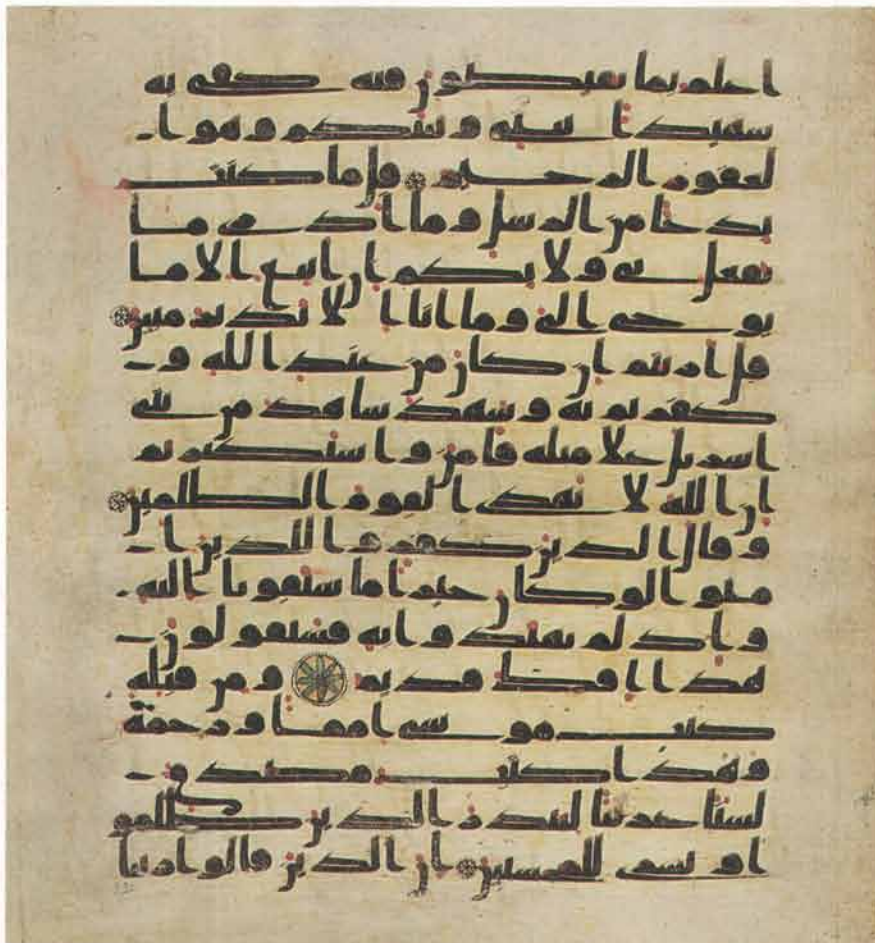 اعلم بما تفيضون فيه كفى به
شهيدا بيني وبينكم وهو ا
لغفور الرحيم قل ما كنت
بدعا من الرسل وما ادري ما
يفعل بي ولا بكم ان اتبع الا ما
يوحى الي وما انا الا نذير مبين
قل اريتم ان كان من عند الله و
كفرتم به وشهد شاهد من بني
اسريل على مثله فامن واستكبرتم
ان الله لا يهدي القوم الظلمين
وقال الذين كفروا للذين ا
منوا لو كان خيرا ما سبقونا اليه
واذ لم يهتدوا به فسيقولون
هذا افك قديم ومن قبله
كتب موسى اماما ورحمة
وهذا كتب مصدق
لسانا عربيا لينذر الذين ظلمو
ا وبشرى للمحسنين ان الذين قالوا ربنا